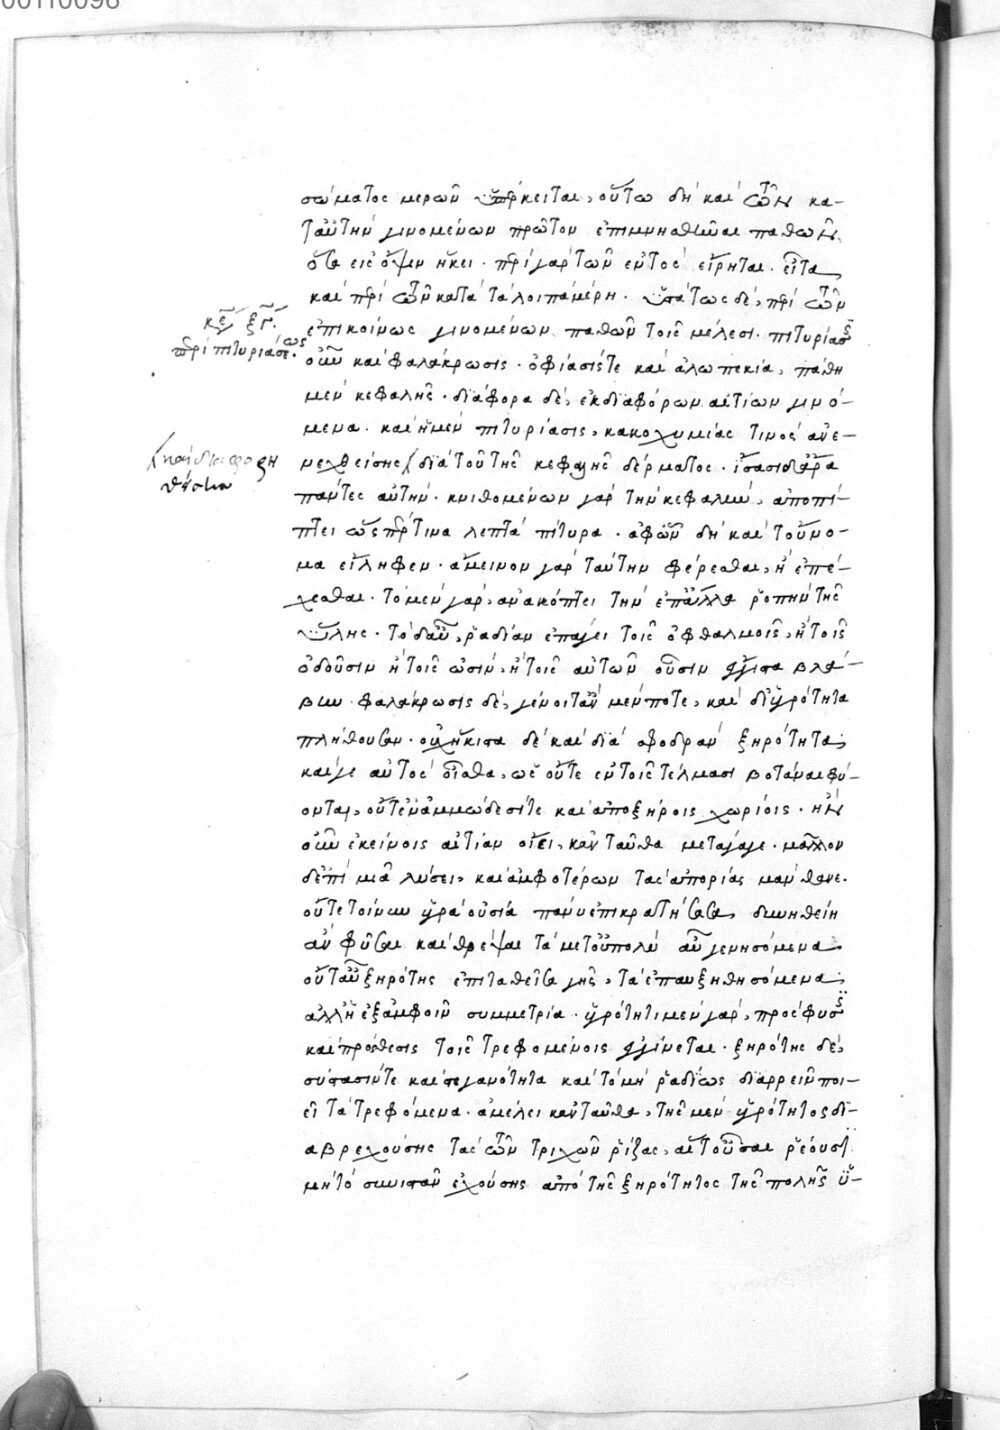 00110098
σώματος μερῶν ὑπέρκειται, οὕτω δὴ καὶ τῶν κα-
ταύτην γινομένων πρῶτον ἐπιμνησθῆναι παθῶν,
ὅσα εἰς ὄψιν ἥκει. περὶ γὰρ τῶν ἐντὸς εἴρηται. εἶτα
καὶ περὶ τῶν κατὰ τὰ λοιπὰ μέρη. ὑστάτως δὲ, περὶ τῶν
κεφ ξγ.
περὶ πιτυριάσεως.
ἐπικοίνως γινομένων παθῶν τοῖς μέλεσι. πιτυρίασις
οὖν καὶ φαλάκρωσις. ὀφίασίς τε καὶ ἀλωπεκία, πάθη
μὲν κεφαλῆς. διάφορα δὲ, ἐκ διαφόρων αἰτίων γινό-
μενα. καὶ ἡ μὲν πιτυρίασις, κακοχυμίας τινὸς ἀνε-
καὶ διαφορη
θείσιν
νεχθείσης διὰ τοῦ τῆς κεφαλῆς δέρματος. ἴσασι δ' ἄρα
πάντες αὐτήν. κνιθομένων γὰρ τὴν κεφαλὴν, ἀποπί-
πτει ὥσπερ τινα λεπτὰ πίτυρα. ἀφ' ὧν δὴ καὶ τοὔνο-
μα εἴληφεν. ἄμεινον γὰρ ταύτην φέρεσθαι, ἢ ἐπέ-
χεσθαι. τὸ μὲν γὰρ, ἀνακόπτει τὴν ἐπ' ἄλλα ῥοπὴν τῆς
ὕλης. τὸ δ' αὖ, ῥαδίαν ἐπάγει τοῖς ὀφθαλμοῖς, ἢ τοῖς
ὀδοῦσιν ἢ τοῖς ὠσὶν, ἢ τοῖς αὐτῶν οὖσιν ἔγγιστα βλά-
βην. φαλάκρωσις δὲ, γένοιτ' ἂν μέν ποτε, καὶ δι' ὑγρότητα
πλήθουσαν. οὐχ ἥκιστα δὲ καὶ διὰ σφοδρὰν ξηρότητα.
καί γε αὐτὸς οἶσθα, ὡς οὔτε ἐν τοῖς τέλμασι βοτάναι φύ-
ονται, οὔτ' ἐν ἀμμώδεσί τε καὶ ἀποξήροις χωρίοις. ἣν
οὖν ἐκείνοις αἰτίαν οἴει, κἀνταῦθα μετάγαγε. μᾶλλον
δ' ἐπὶ μιᾷ λύσει, καὶ ἀμφοτέρων τὰς ἀπορίας μάνθανε.
οὔτε τοίνυν ὑγρὰ οὐσία πάνυ ἐπικρατήσασα, δυνηθείη
ἂν φῦσαι καὶ θρέψαι τὰ μετοὐπολὺ αὖ γενησόμενα,
οὔτ' αὖ ξηρότης ἐπιταθεῖσα γῆς, τὰ ἐπαυξηθησόμενα.
ἀλλ' ἡ ἐξ ἀμφοῖν συμμετρία. ὑγρότητι μὲν γὰρ, πρόσφυσις
καὶ πρόσθεσις τοῖς τρεφομένοις ἐγγίνεται. ξηρότης δὲ,
σύστασίν τε καὶ στεγανότητα καὶ τὸ μὴ ῥαδίως διαρρεῖν ποι-
εῖ τὰ τρεφόμενα. ἀμέλει κἀνταῦθα, τῆς μὲν ὑγρότητος δι-
αβρεχούσης τὰς τῶν τριχῶν ῥίζας, αἱ τοῦσαι ῥέουσι.
μὴ τὸ συνιστᾶν ἐχούσης ἀπὸ τῆς ξηρότητος τῆς πολλῆς ὑ-